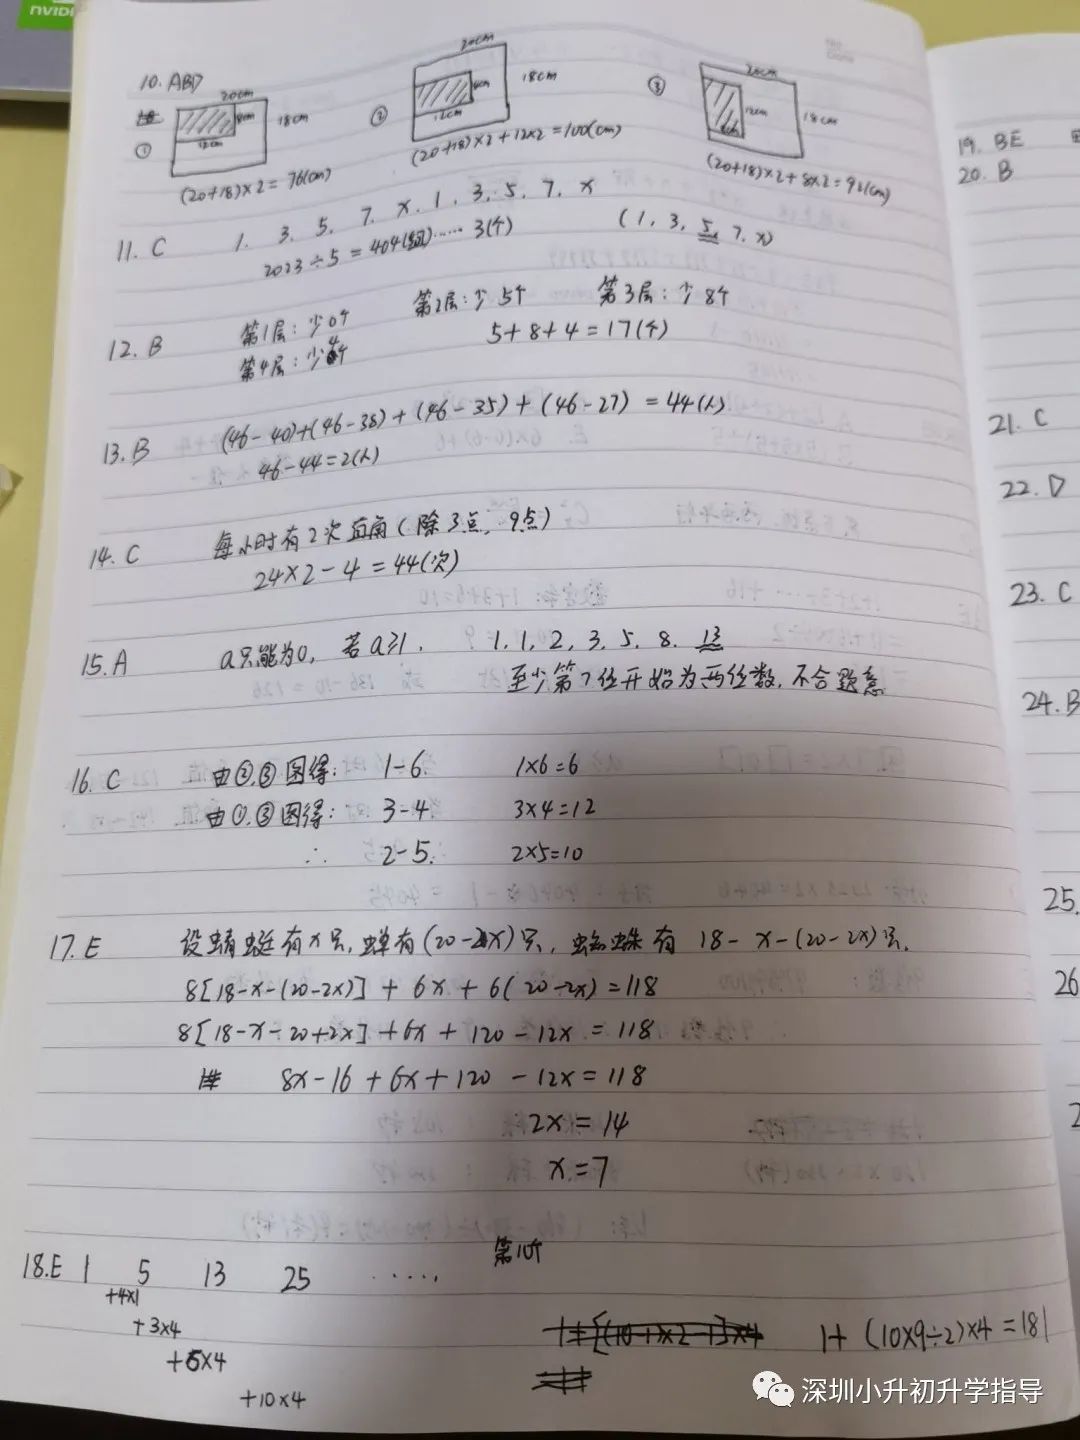 NVIDI
10. ABD
20cm
8cm
18cm
12cm
①
(20+18)×2=76(cm)
②
20cm
8cm
18cm
12cm
(20+18)×2+12×2=100(cm)
③
20cm
12cm
18cm
8cm
(20+18)×2+8×2=92(cm)
11. C 1. 3. 5. 7. x. 1. 3. 5. 7. x
2023÷5=404(组)……3(个) (1, 3, 5, 7, x)
12. B 第1层:少0个 第2层:少5个 第3层:少8个
第4层:少4个 5+8+4=17(个)
13. B (46-40)+(46-38)+(46-35)+(46-27)=44(人)
46-44=2(人)
14. C 每小时有2次直角(除3点, 9点)
24×2-4=44(次)
15. A a只能为0, 若a≥1, 1, 1, 2, 3, 5, 8, 13
至少第7位开始为两位数, 不合题意
16. C 由②,③图得: 1-6 1×6=6
由①,③图得: 3-4 3×4=12
∴ 2-5. 2×5=10
17. E 设蜻蜓有x只, 蝉有(20-2x)只, 蜘蛛有 18-x-(20-2x)只.
8[18-x-(20-2x)]+6x+6(20-2x)=118
8[18-x-20+2x]+6x+120-12x=118
8x-16+6x+120-12x=118
2x=14
x=7
18. E 1 5 13 25 …… 第10个
+4×1
+3×4
+6×4
+10×4
1+(10×9÷2)×4=181
19. BE
20. B
21. C
22. D
23. C
24. B
25.
26
2
深圳小升初升学指导